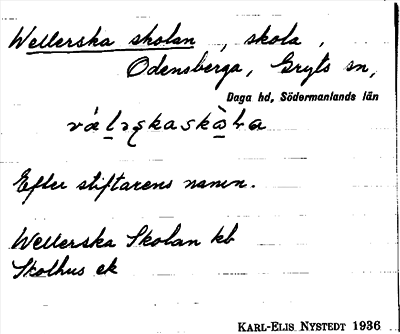 Wellerska skolan, skola,
Odensberga, Gryts sn,
Daga hd, Södermanlands län
Efter stiftarens namn.
Wellerska Skolan kb
Skolhus ek
KARL-ELIS NYSTEDT 1936